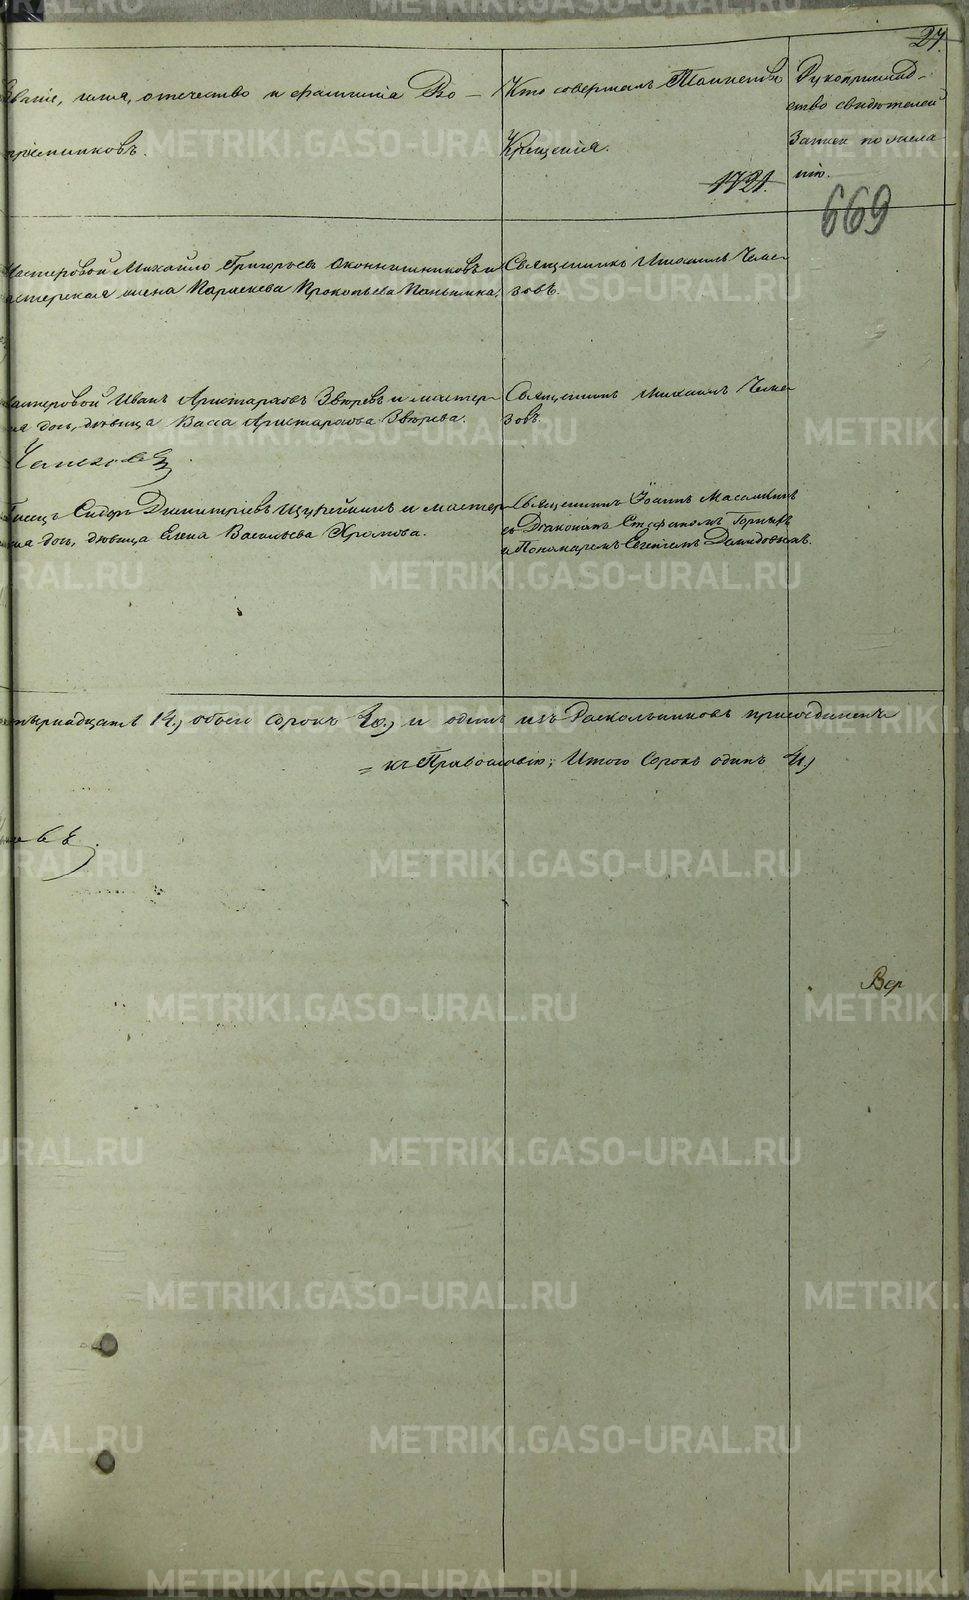 27.
Званіе, имя, отечество и фамилія Во-
пріемниковъ.
Кто совершалъ Таинство
Крещенія.
1721.
Рукоприклад-
ство свидѣтелей
записи по жела-
нію.
669
Мастеровой Михайло Григорьевъ Оконнишниковъ и
мастерская жена Параскева Прокопьева
Священникъ Михаилъ Чеме-
зовъ.
Мастеровой Иванъ Аристарховъ Звѣревъ и мастер-
ская дочь, дѣвица Васса Аристархова Звѣрева.
Священникъ Михаилъ Чеме-
зовъ.
Писецъ Сидоръ Димитріевъ и мастер-
ская дочь, дѣвица Елена Васильева Хромова.
Священникъ Іоаннъ
съ Діакономъ Стефаномъ
и Пономаремъ Евгеніемъ
четырнадцать 14, обоего сорокъ 40, и одинъ изъ Раскольниковъ присоединенъ
= къ Православію; Итого сорокъ одинъ 41,
Вер
METRIKI.GASO-URAL.RU